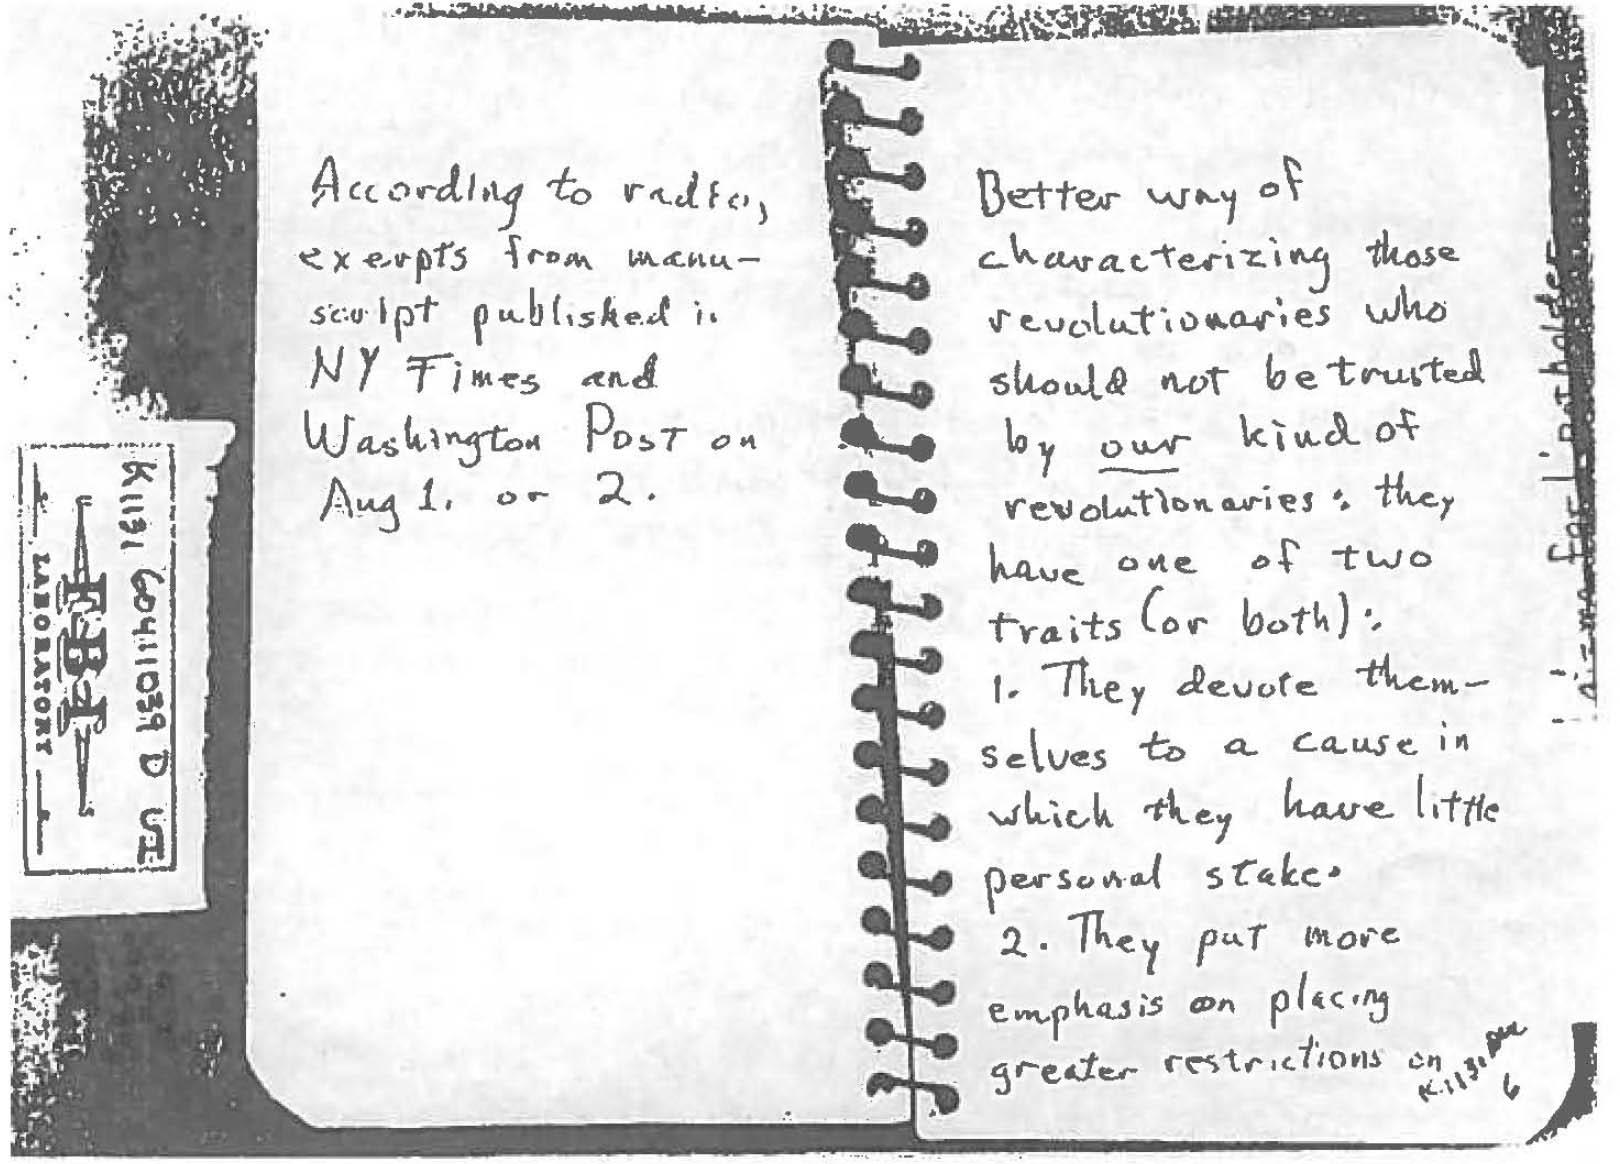 According to radio,
exerpts from manu-
script published in
NY Times and
Washington Post on
Aug 1. or 2.
Better way of
characterizing those
revolutionaries who
should not be trusted
by our kind of
revolutionaries: they
have one of two
traits (or both):
1. They devote them-
selves to a cause in
which they have little
personal stake.
2. They put more
emphasis on placing
greater restrictions on
K1131
6
K1131 60411039 D UI
FBI
LABORATORY
for